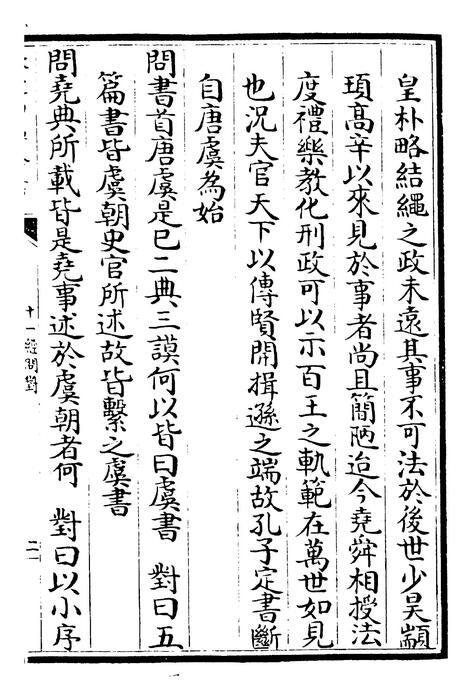 皇朴略結繩之政未遠其事不可法於後世少昊顓
頊髙辛以來見於事者尚且簡陋迨今堯舜相授法
度禮樂教化刑政可以示百王之軌範在萬世如見
也況夫官天下以傳賢開揖遜之端故孔子定書斷
自唐虞為始
問書首唐虞是巳二典三謨何以皆曰虞書 對曰五
篇書皆虞朝史官所述故皆繫之虞書
問堯典所載皆是堯事述於虞朝者何 對曰以小序
十一經問對
二